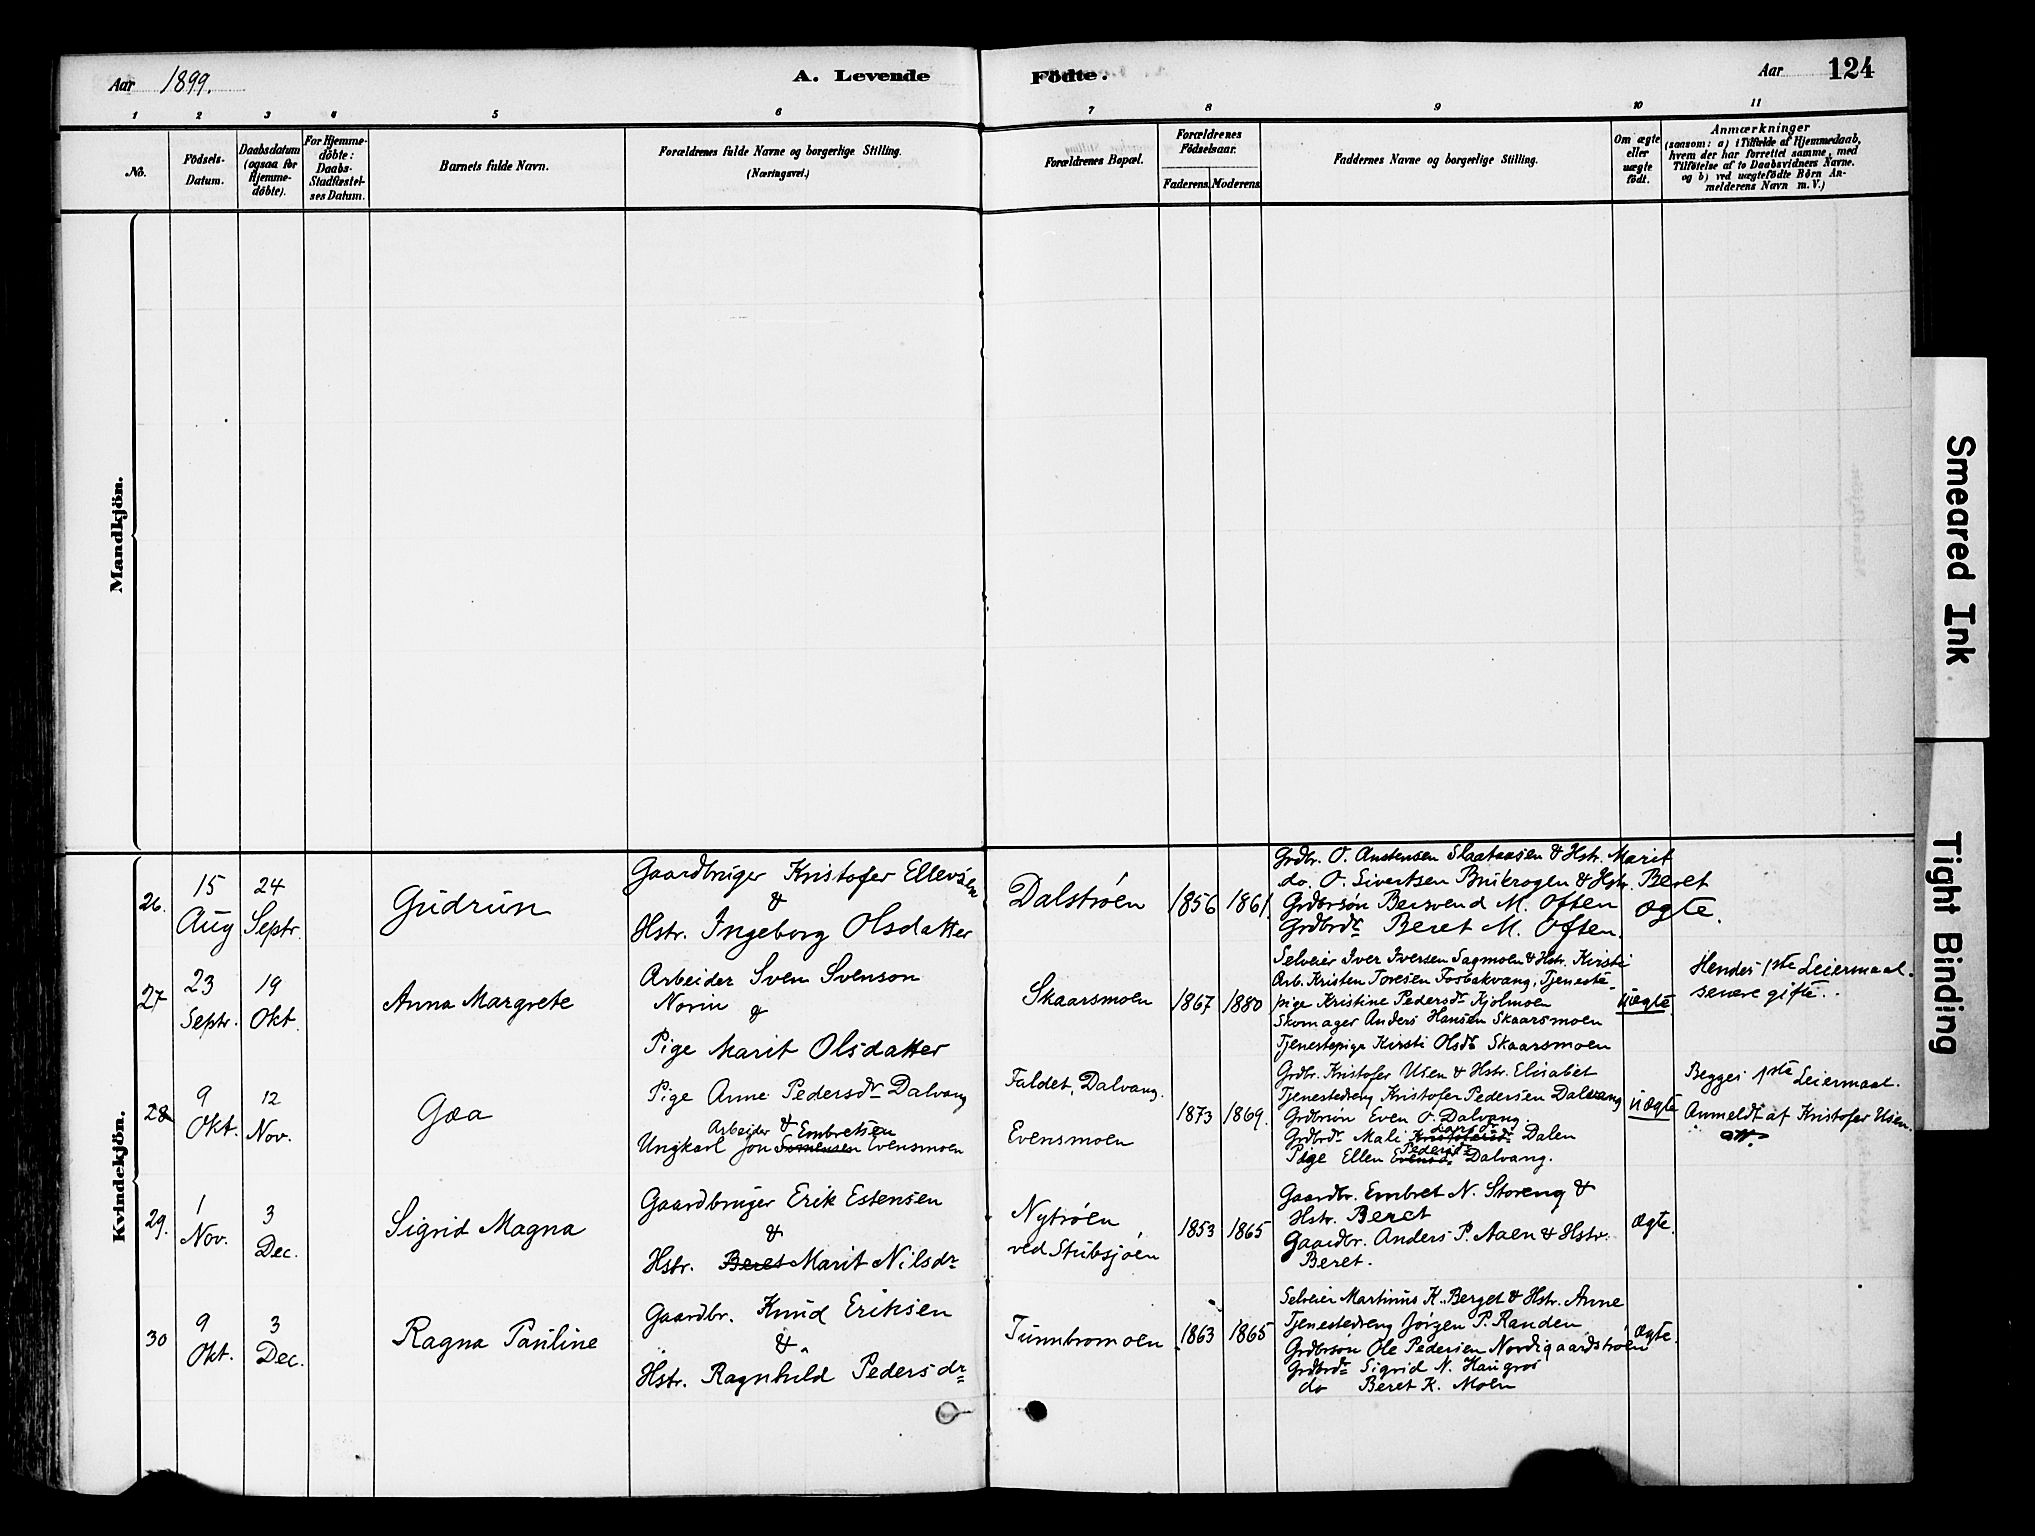 Aar 1899.
A. Levende
Födte.
Aar
124
1 2 3 4 5 6 7 8 9 10 11
No.
Födsels-
Datum.
Daabsdatum
(ogsaa for
Hjemme-
döbte).
For Hjemme-
döbte:
Daabs-
Stadfæstel-
ses Datum.
Barnets fulde Navn.
Forældrenes fulde Navne og borgerlige Stilling.
(Næringsvei.)
Forældrenes Bopæl.
Forældrenes
Födselsaar.
Faderens. Moderens.
Faddernes Navne og borgerlige Stilling.
Om ægte
eller
uægte
födt.
Anmærkninger
(saasom: a) i Tilfælde af Hjemmedaab,
hvem der har forrettet samme, med
Tilföielse af to Daabsvidners Navne.
og b) ved uægtefödte Börn An-
melderens Navn m. V.)
Mandkjön.
Kvindekjön.
26.
15
Aug
24
Septr.
Gudrun
Gaardbruger Kristofer Ellevsen
&
Hstr. Ingeborg Olsdatter
Dalströen
1856
1861.
Grdbr. O. Anstensen Slaataasen & Hstr. Marit
do. O. Sivertsen Brukrogen & Hstr. Beret
Grdbrsön Bersvend M. Often
Grdbrdr Beret M. Often.
ægte.
27
23
Septr.
19
Okt.
Anna Margrete
Arbeider Sven Svenson
Norin &
Pige Marit Olsdatter
Skaarsmoen
1867
1880
Selveier Iver Iversen Sagmoen & Hstr. Kirsti
Arb. Kristen Toresen Fosbakvang, Tjeneste-
pige Kristine Pedersdr Kjölmoen
Skomager Anders Hansen Skaarsmoen
Tjenestepige Kirsti Olsdr Skaarsmoen
uægte
Hendes 1ste Leiermaal.
senere gifte.
28
9
Okt.
12
Nov.
Gøa
Pige Anne Pedersdr Dalvang
Arbeider & Embretsen
Ungkarl Jon Evensmoen
Faldet, Dalvang.
Evensmoen
1873
1869.
Grdbr. Kristofer Usen & Hstr. Elisabet
Tjenestedreng Kristofer Pedersen Dalvang
Grdbrsön Even O. Dalvang.
Larsdr
Grdbrdr Mali Kristofersdr Dalen
Pedersdr
Pige Ellen Evensdr Dalvang.
uægte
Begges 1ste Leiermaal.
Anmeldt af Kristofer Elsen.
29.
1
Nov.
3
Dec.
Sigrid Magna
Gaardbruger Erik Estensen
&
Hstr. Beret Marit Nilsdr
Nytröen
ved Stubsjöen
1853
1865
Gaardbr. Embret N. Storeng &
Hstr. Beret
Gaardbr. Anders P. Aaen & Hstr.
Beret.
ægte.
30
9
Okt.
3
Dec.
Ragna Pauline
Gaardbr. Knud Eriksen
&
Hstr. Ragnhild Pedersdr
Tunnbromoen
1863
1865
Selveier Martinus K. Berget & Hstr. Anne
Tjenestedreng Jörgen P. Randen
Grdbrsön Ole Pedersen Nordigaardströen
Grdbrdr Sigrid N. Haugros
do Beret K. Moen
ægte.
Smeared Ink
Tight Binding